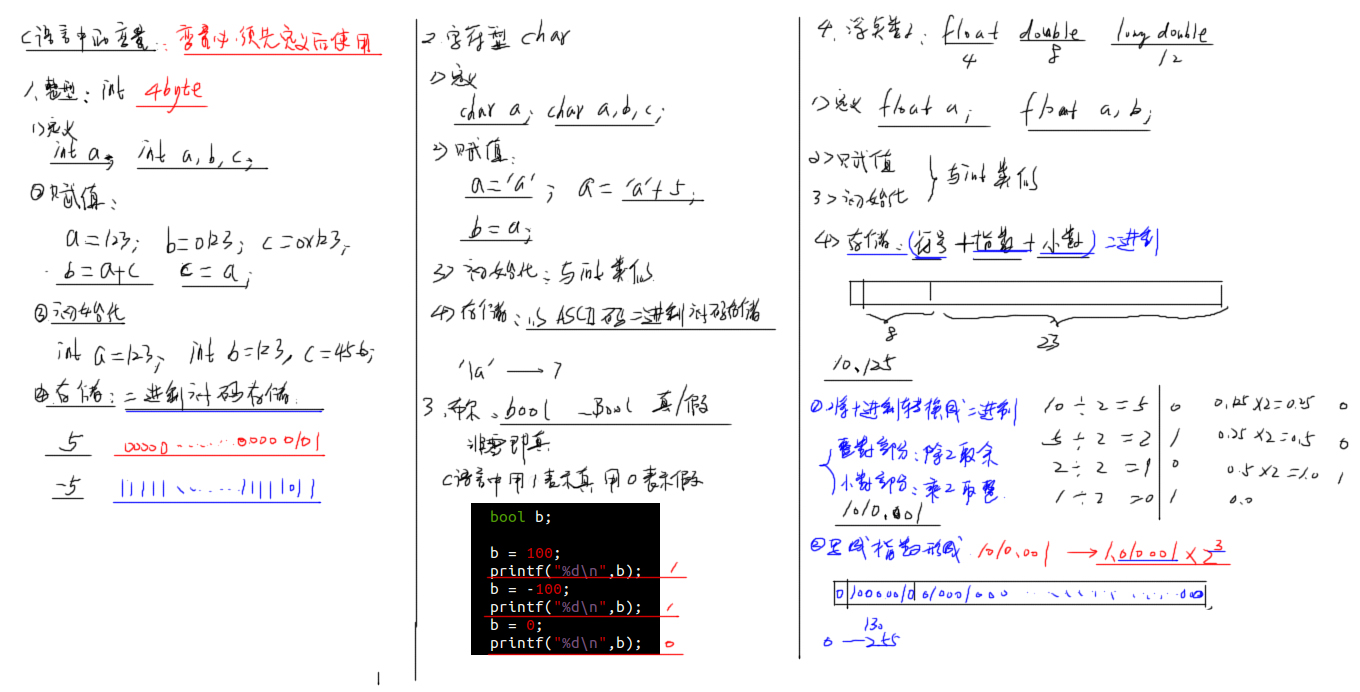 C语言中的变量:变量必须先定义后使用
1、整型:int 4byte
1>定义
int a; int a,b,c;
②赋值:
a=123; b=0123; c=0x123;
b=a+c c=a;
③初始化
int a=123; int b=123, c=456;
④存储:二进制补码存储.
5 00000 ...... 00000101
-5 11111 ...... 11111011
2.字符型 char
1>定义
char a; char a,b,c;
2>赋值:
a='a'; a='a'+5;
b=a;
3>初始化:与int类似
4>存储:以ASCII码二进制补码存储
'\a' → 7
3.布尔.bool _Bool 真/假
非零即真
C语言中用1表示真 用0表示假
bool b;
b = 100;
printf("%d\n",b); 1
b = -100;
printf("%d\n",b); 1
b = 0;
printf("%d\n",b); 0
4.浮点类: float double long double
4 8 12
1>定义 float a; float a,b;
2>赋值
3>初始化 } 与int类似
4>存储:(符号+指数+小数)二进制
8 23
10.125
①将十进制转换成二进制
整数部分:除2取余
小数部分:乘2取整
1010.001
10÷2=5 0 0.125×2=0.25 0
5÷2=2 1 0.25×2=0.5 0
2÷2=1 0 0.5×2=1.0 1
1÷2=0 1 0.0
②写成指数形式. 1010.001 → 1.010001×2^3
0 10000010 010001000 ...... 000
130
0 — 255